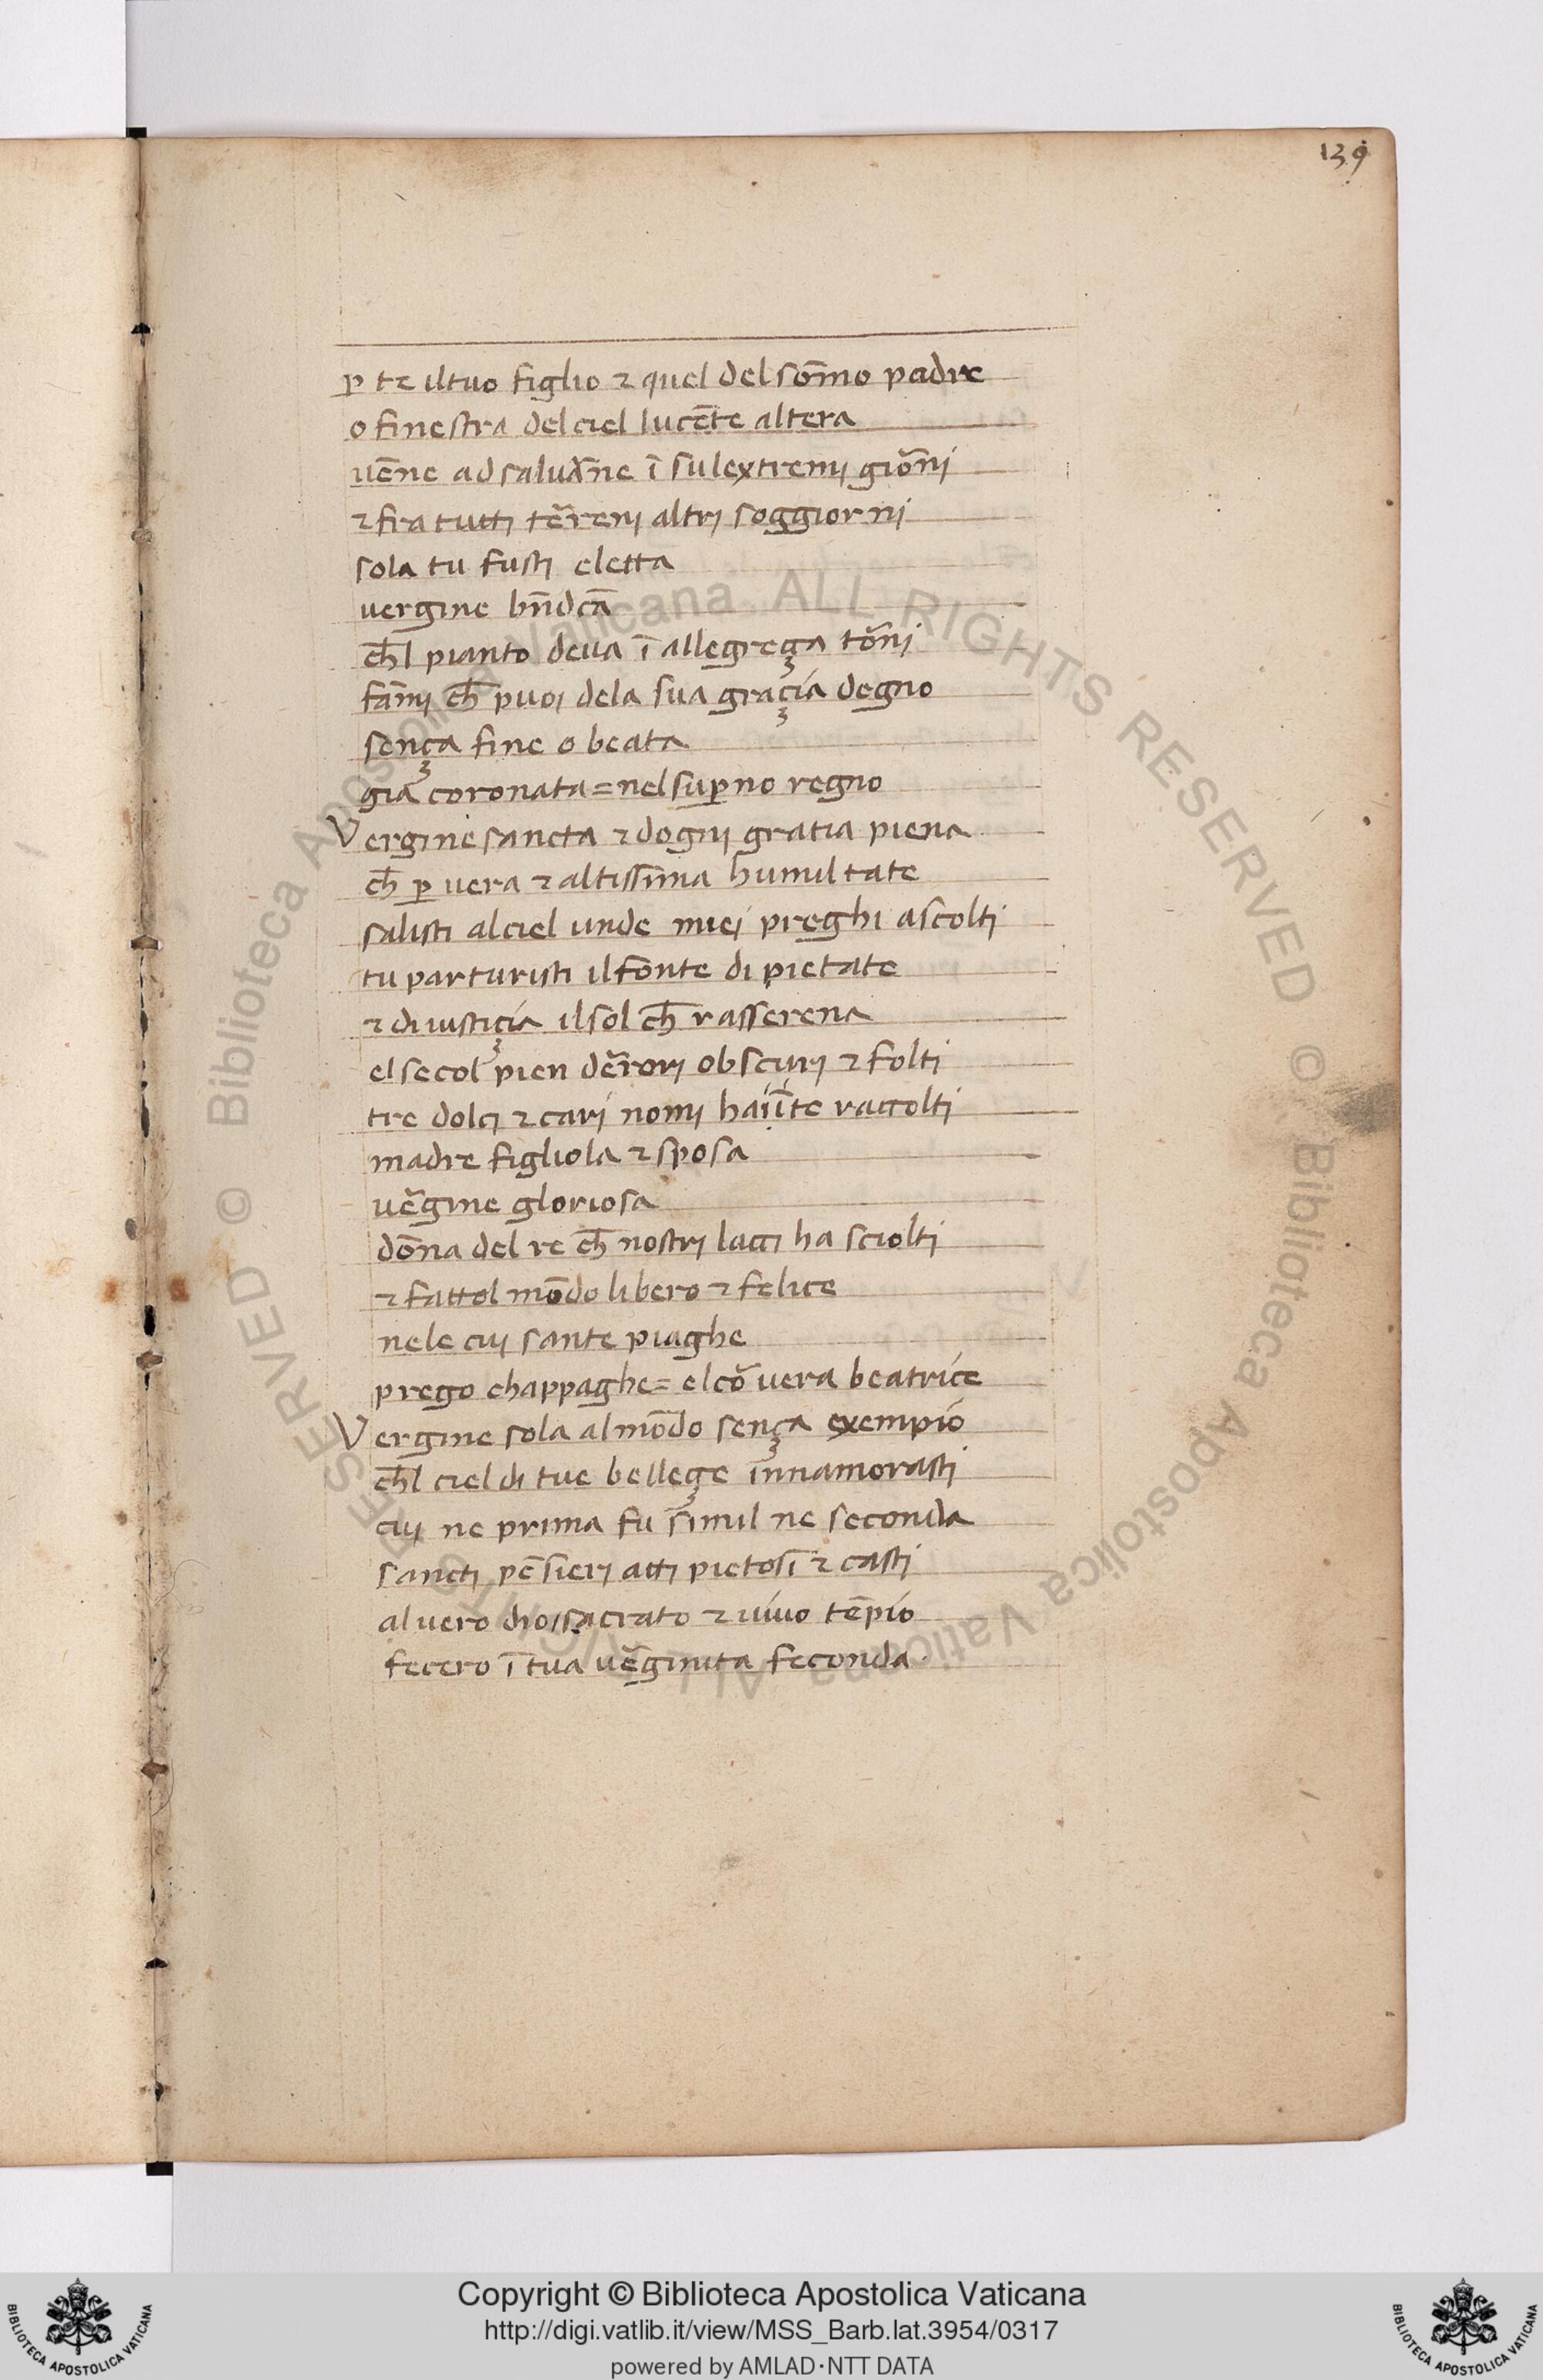 139
ꝑ te iltuo figlio ⁊ quel del som̄o padre
o finestra del ciel lucēte altera
uēne ad saluar̄ne ī sulextremi gior̄ni
⁊ fra tutti ter̄reni altri soggiorni
sola tu fusti eletta
uergine bn̄dcā
ch̄l pianto deua ī allegreça tor̄ni
fām̄i ch̄ puoi dela sua graçia degno
sença fine o beata
gia coronata = nel suꝑno regno
Vergine sancta ⁊ dogni gratia piena
ch̄ ꝑ uera ⁊ altissima humiltate
salisti alciel unde miei preghi ascolti
tu parturisti ilfonte di pietate
⁊ di iustiçia ilsol ch̄ rasserena
el secol pien der̄rori obscuri ⁊ folti
tre dolci ⁊ cari nomi hai īte raccolti
madre figliola ⁊ sposa
ūgine gloriosa
dōna del re ch̄ nostri lacci ha sciolti
⁊ fattol mōdo libero ⁊ felice
nele cui sante piaghe
prego chappaghe = elcō uera beatrice
Vergine sola al mōdo sença exempio
ch̄l ciel di tue belleçe innamorasti
cui ne prima fu simil ne seconda
sancti pēsieri atti pietosi ⁊ casti
al uero dio sacrato ⁊ uiuo tēpio
fecero ī tua ūginita feconda.
Copyright © Biblioteca Apostolica Vaticana
http://digi.vatlib.it/view/MSS_Barb.lat.3954/0317
powered by AMLAD·NTT DATA
BIBLIOTECA APOSTOLICA VATICANA
BIBLIOTECA APOSTOLICA VATICANA
© Biblioteca Apostolica Vaticana ALL RIGHTS RESERVED © Biblioteca Apostolica Vaticana ALL RIGHTS RESERVED